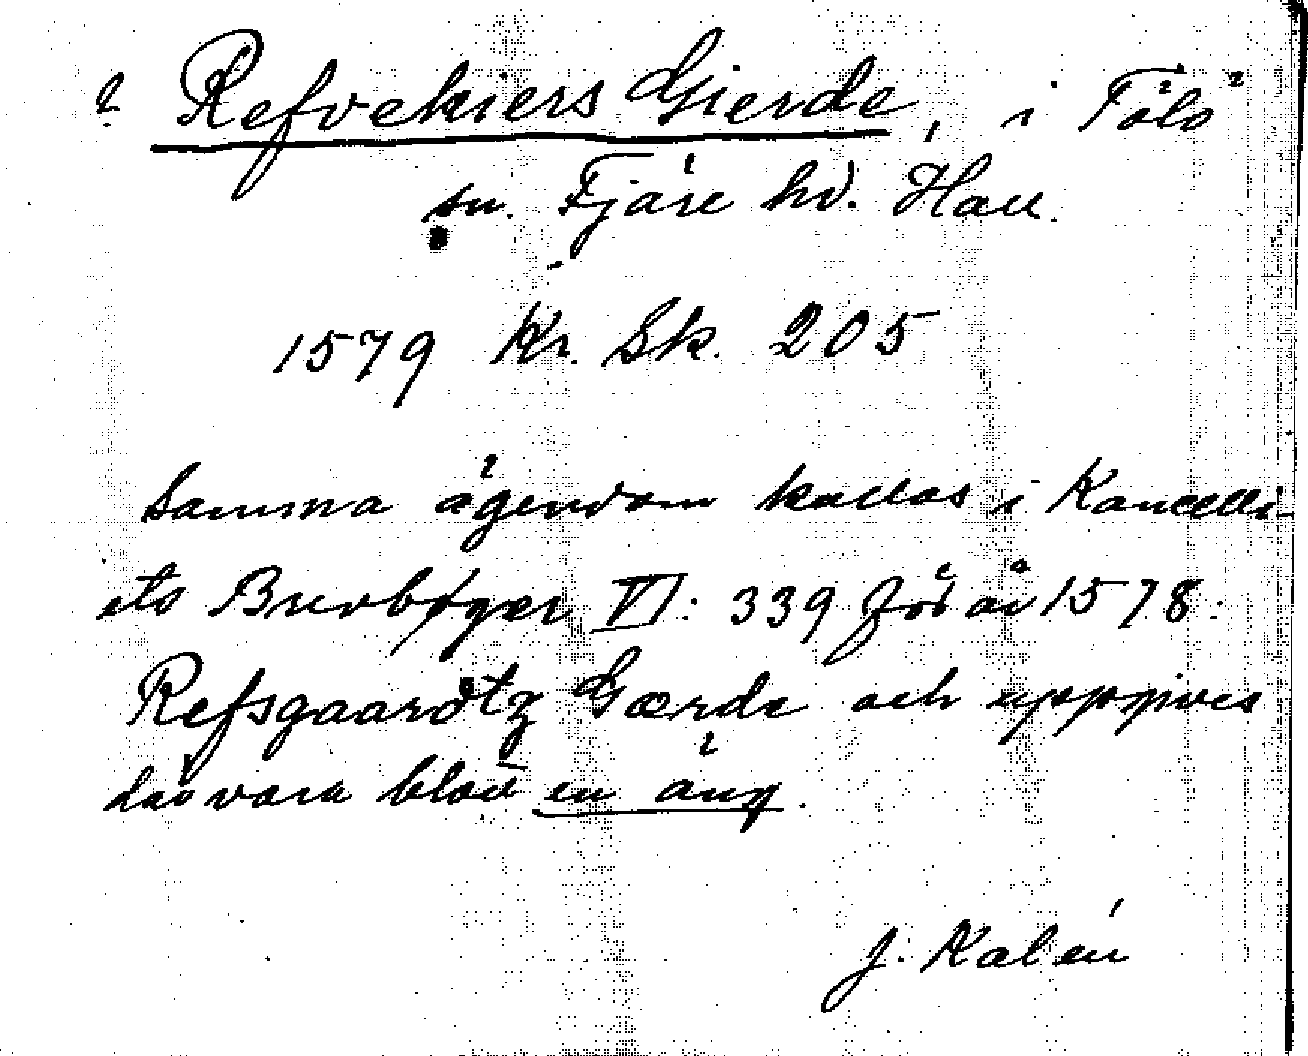 ? Refvekiers Gierde, i Tölö
sn. Fjäre hd. Hall.
1579 Kr. Sk. 205
Samma ägendom kallas i Kancelli-
ets Brevbøger VI: 339 för år 1578
Refsgaardtz Gærde och uppgives
då vara blott en äng.
J. Kalén